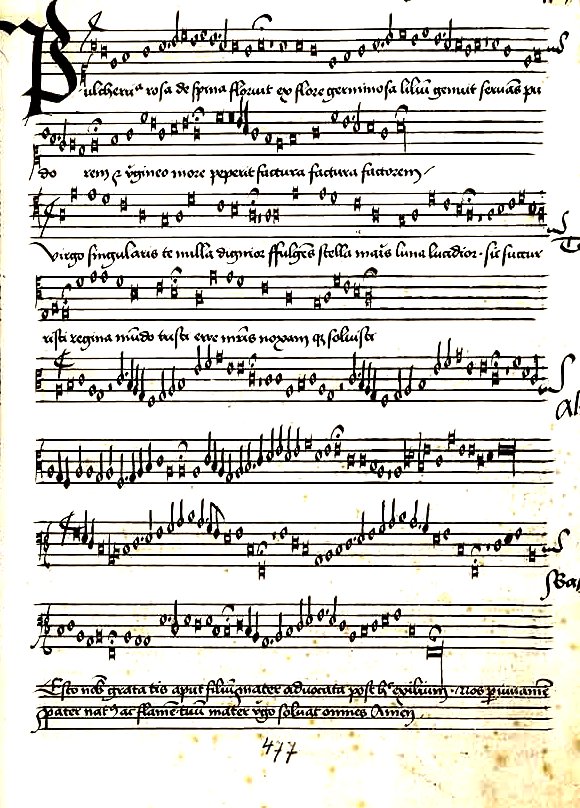 Pulcherria rosa de spina floruit ex flore germinosa liliū genuit servās pu
do rem & v̄gineo more peperit factura factura factorem
Te
Virgo singularis te millā dignior ffulgēs stella mar̄is luna lucidior · sū succur
risti regina mūdo tristi erre mr̄is noxam q̄ solvisti
Al
Ba
Esto nob̄ grata tis aput filiū mater advocata post h̄ exilium · Nos p̄ iuvamē
pater nat⁹ ac flamē tuū mater v̄go solvat omnes Amen
477